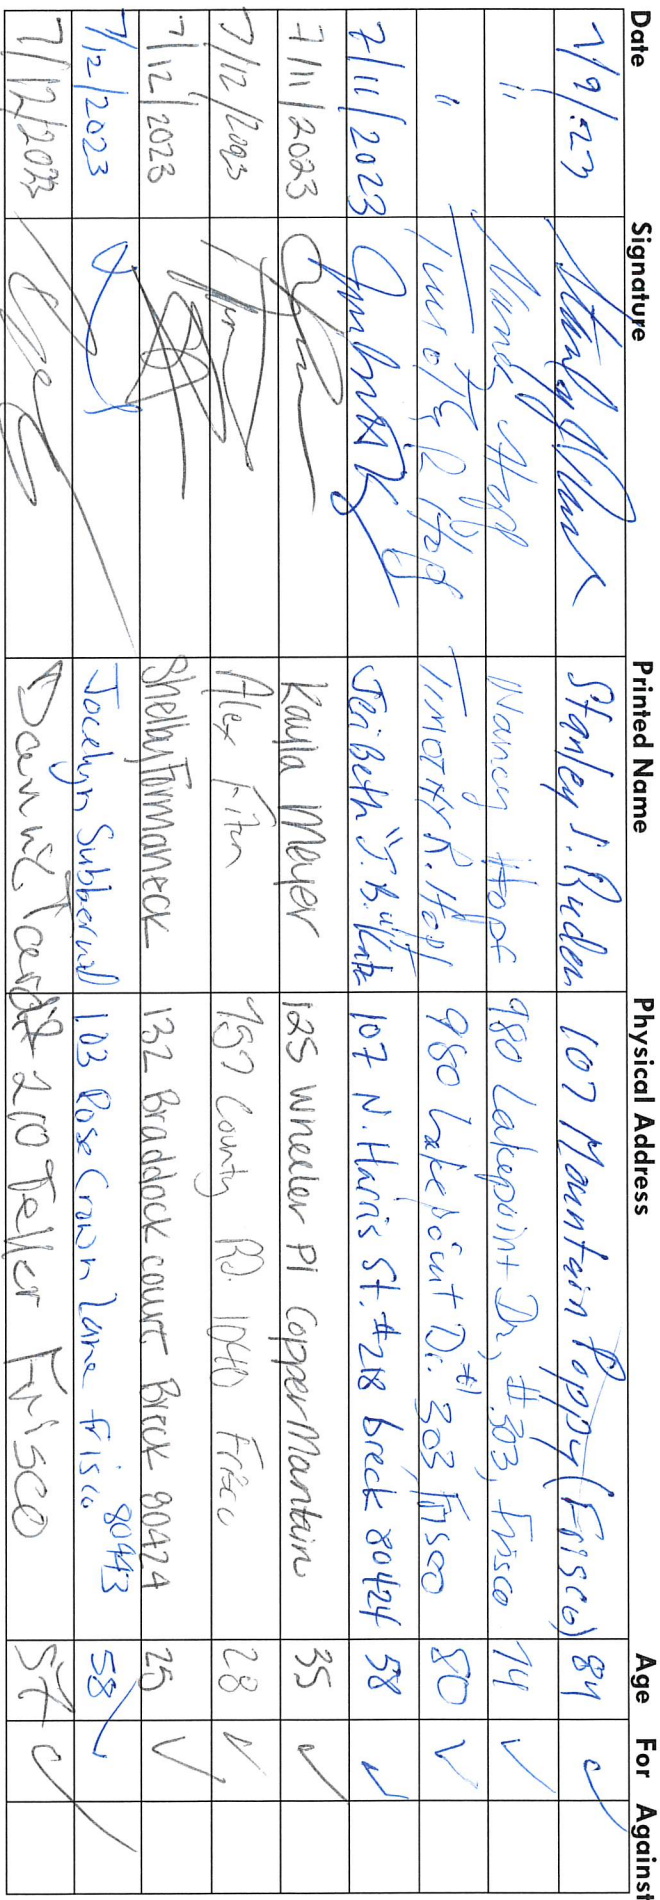 Date Signature Printed Name Physical Address Age For Against
7/9/23 Stanley J. Ruden 107 Mountain Poppy (Frisco) 84 ✓
" Nancy Hopf Nancy Hopf 980 Lakepoint Dr, #303, Frisco 74 ✓
" Timothy R Hopf TIMOTHY R. Hopf 980 Lakepoint Dr. # 303, Frisco 80 ✓
7/11/2023 Jeri Beth "J.B." Katz 107 N. Harris St. #218 breck 80424 58 ✓
7/11/2023 Kayla Mayer 125 Wheeler Pl Copper Mantain 35 ✓
7/12/2023 Alex 757 County RD. 1040 Frisco 28 ✓
7/12/2023 Shelby Formaneck 132 Braddock court Breck 80424 25 ✓
7/12/2023 Jocelyn Subberwal 103 Rose Crown Lane frisco 80443 58 ✓
7/12/2023 210 Teller Frisco 57 ✓